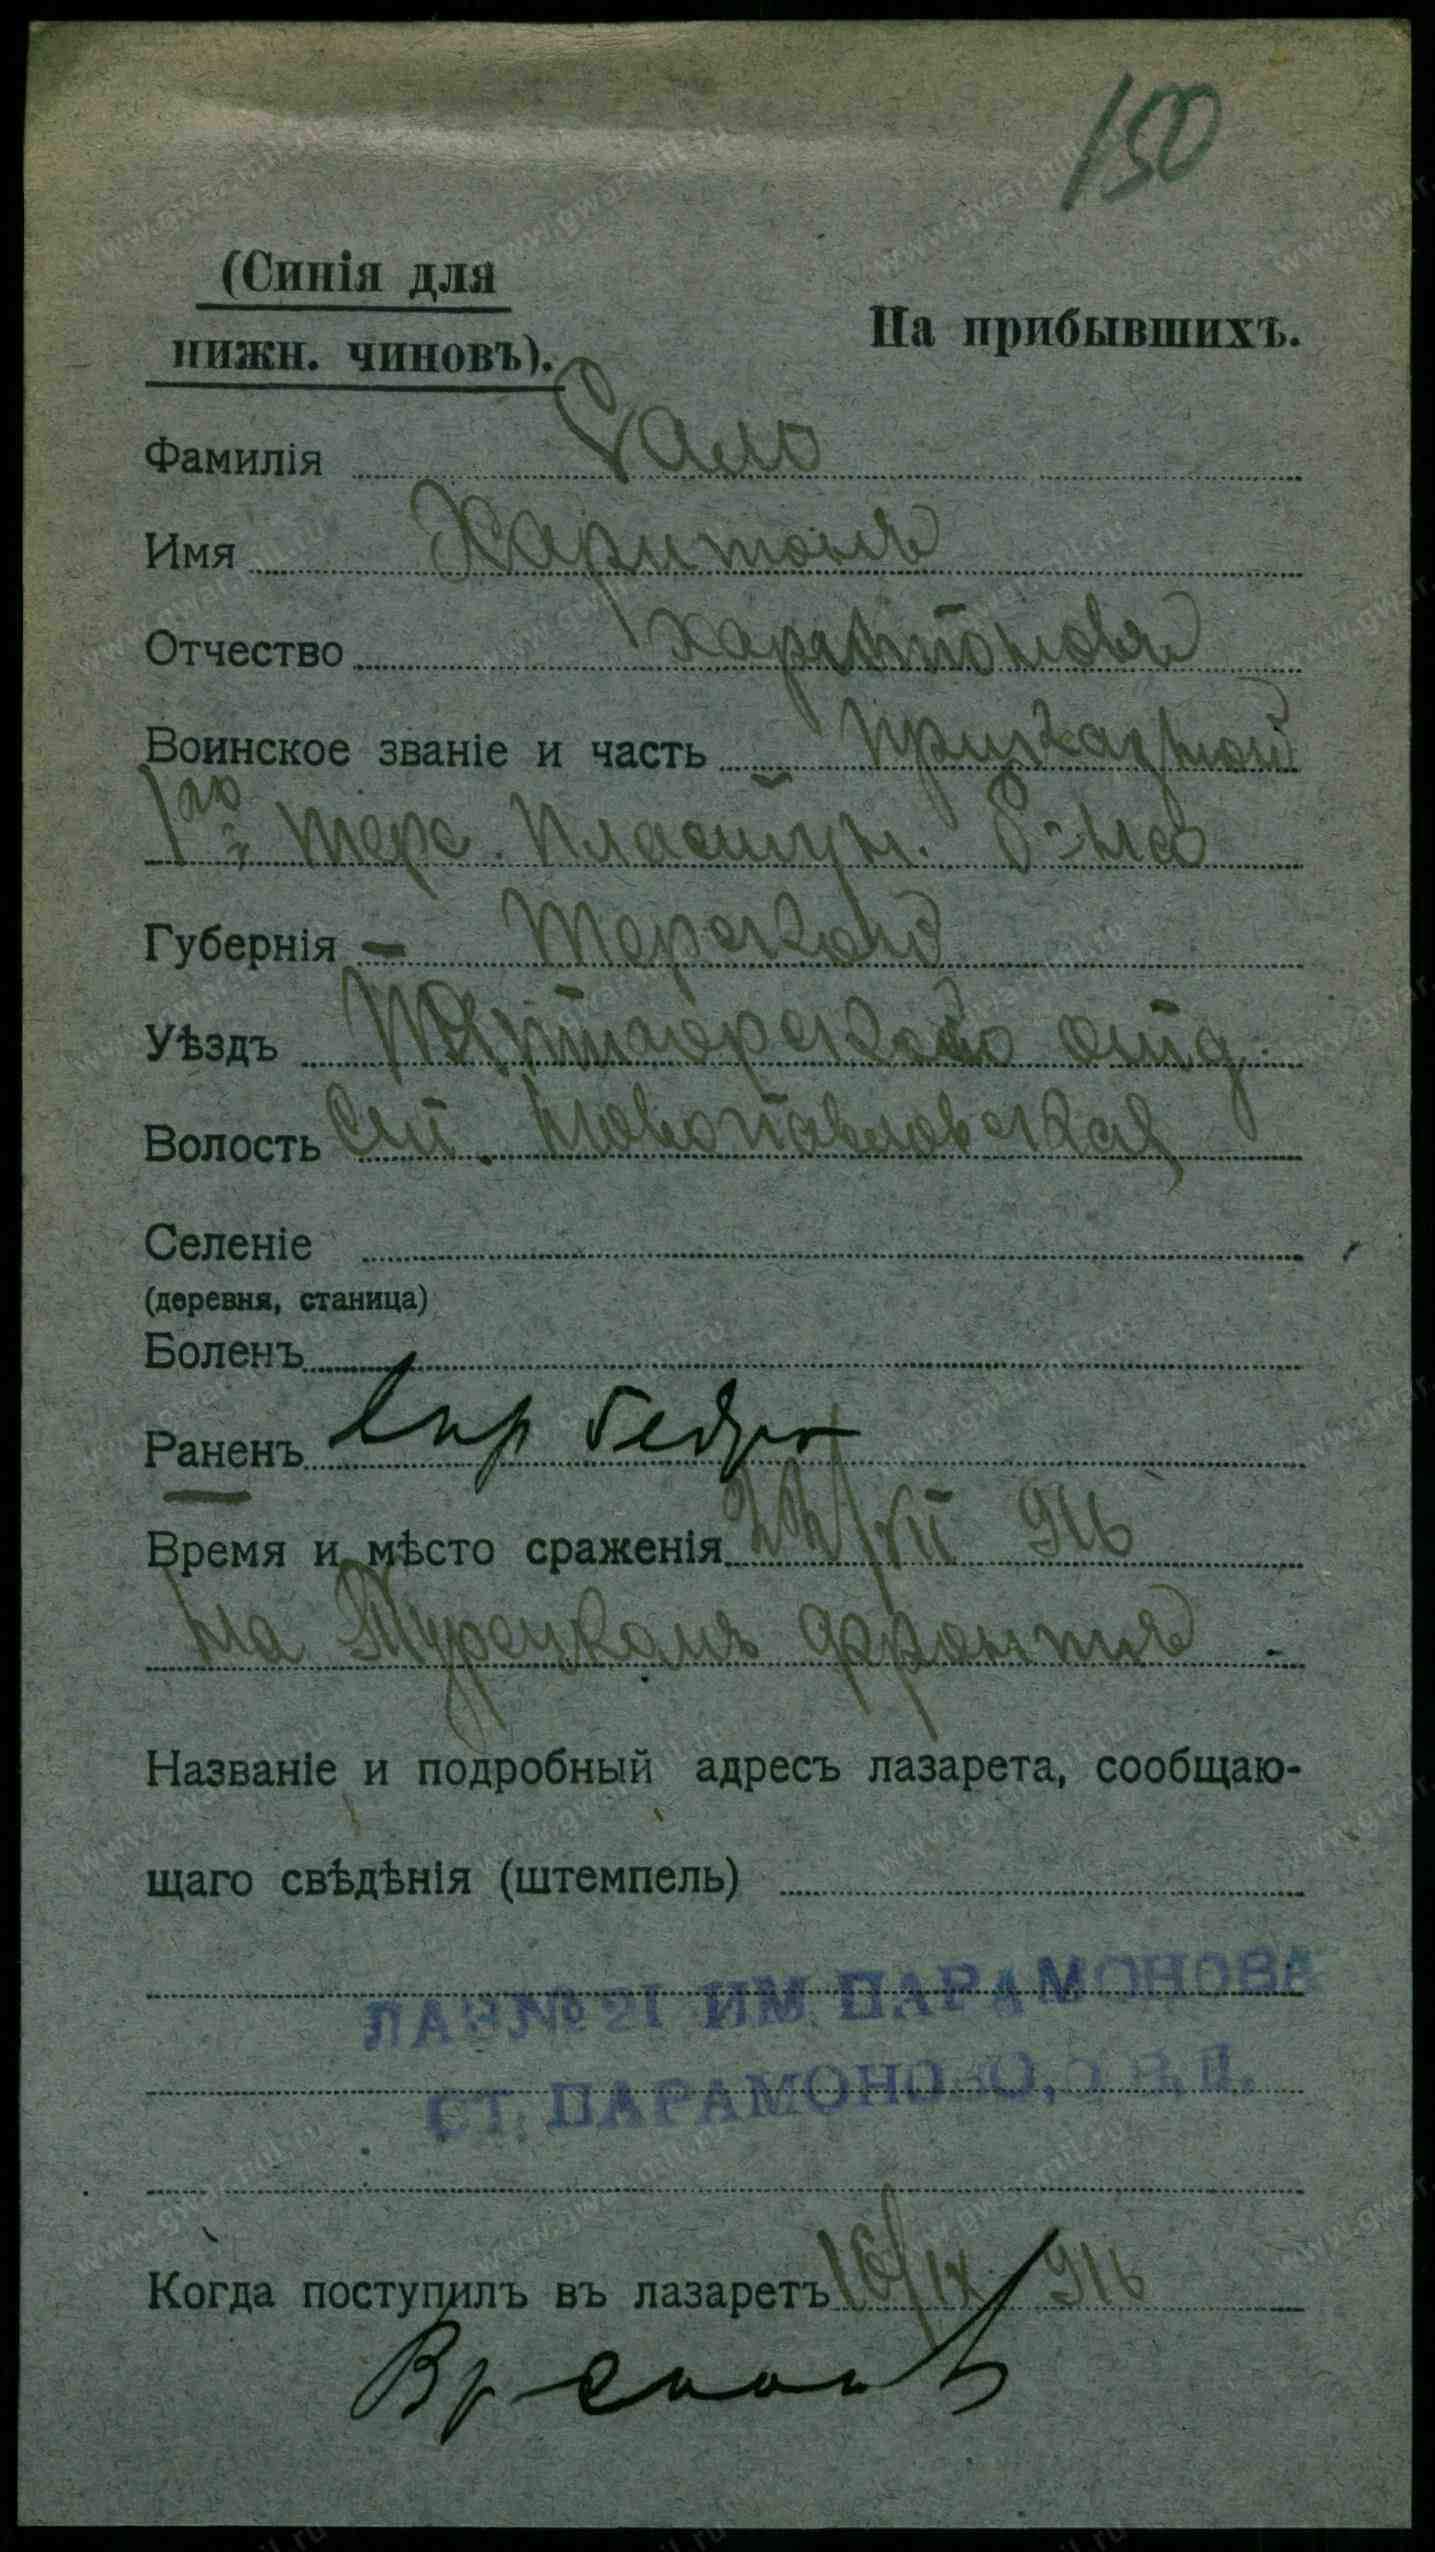 150
(Синія для
нижн. чиновъ).
На прибывшихъ.
Фамилія Сало
Имя Харитонъ
Отчество Харитоновъ
Воинское званіе и часть приказный
1го Терс. Пластун. б-на
Губернія - Терской
Уѣздъ Пятигорскаго отд.
Волость ст. Новопавловская
Селеніе
(деревня, станица)
Боленъ
Раненъ бедра
Время и мѣсто сраженія 22/VII 916
на Турецкомъ фронтѣ
Названіе и подробный адресъ лазарета, сообщаю-
щаго свѣдѣнія (штемпель)
ЛАЗ. №21 ИМ ПАРАМОНОВА
СТ. ПАРАМОНОВО,
Когда поступилъ въ лазаретъ 16/IX 916